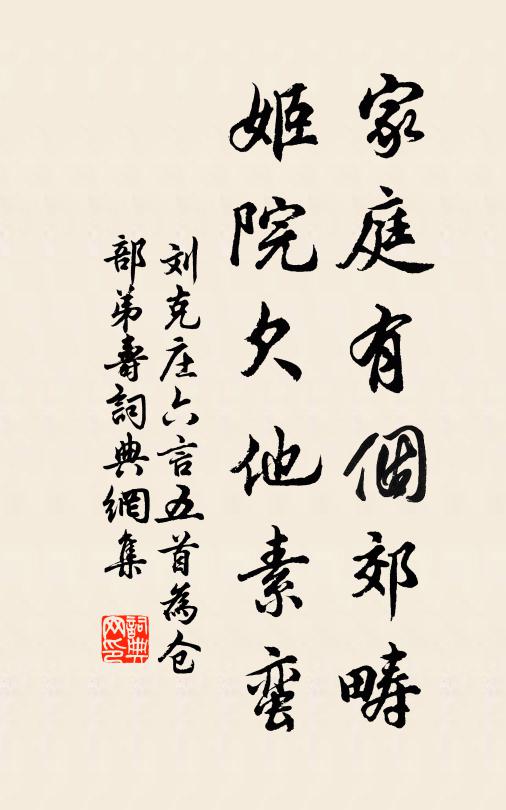 家庭有個郊疇
姬院欠他素蛮
刘克庄六言五首為仓
部弟壽詞典網集
詞典网印